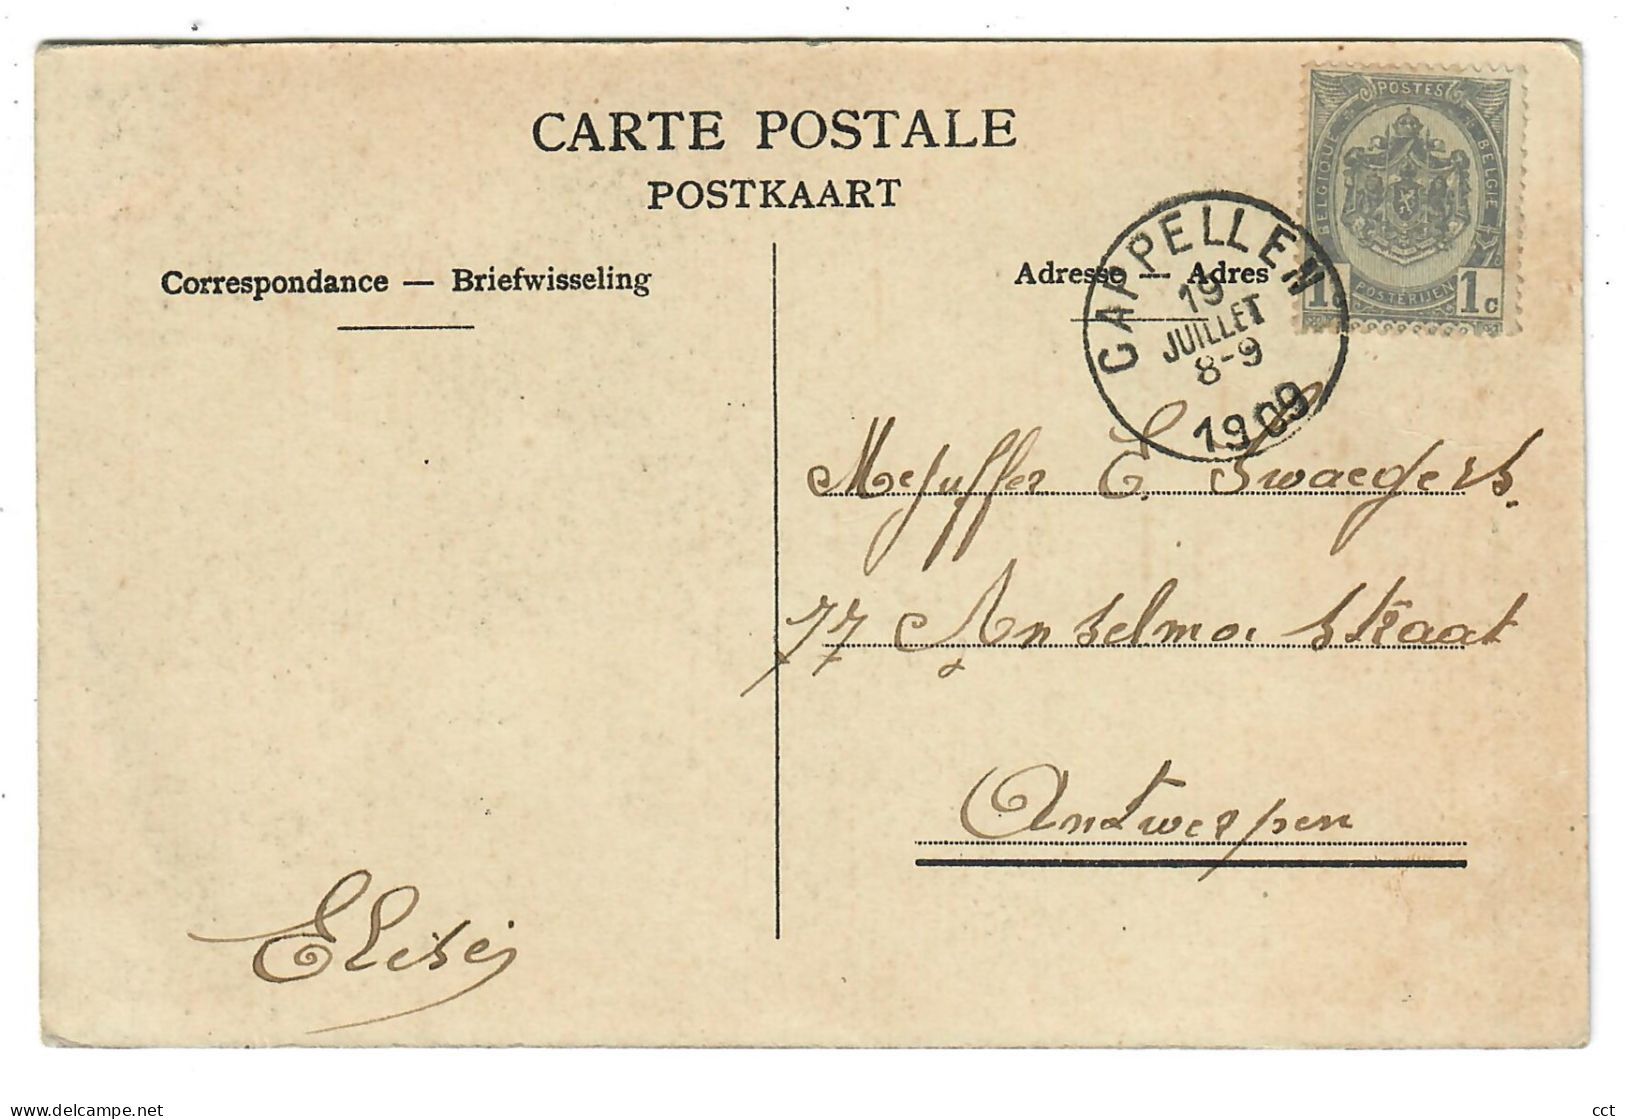 CARTE POSTALE
POSTKAART
Correspondance — Briefwisseling
Adresse — Adres
POSTES
BELGIQUE
BELGIË
POSTERIJEN
1c 1c
CAPPELLEN
19
JUILLET
8-9
1909
Mejuffer E. Swaegers.
77 Anselmo straat
Antwerpen
Elise
delcampe.net
cct